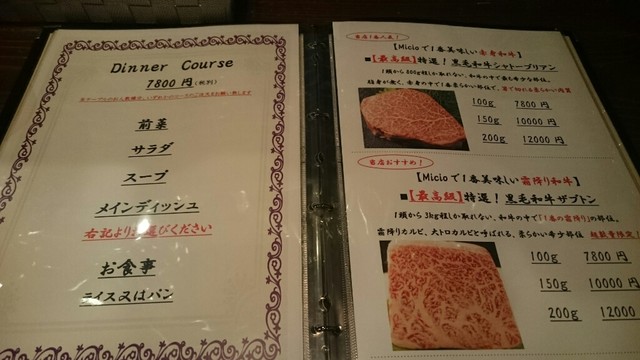 Dinner Course
7800 円(税別)
前菜
サラダ
スープ
メインディッシュ
右記よりお選びください
お食事
ライス又はパン
当店1番人気!
【Micioで1番美味しい赤身和牛】
■【最高級】特選!黒毛和牛シャトーブリアン
100g 7800 円
150g 10000 円
200g 12000 円
当店おすすめ!
【Micioで1番美味しい霜降り和牛】
■【最高級】特選!黒毛和牛ザブトン
1頭から3kg程しか取れない、和牛の中で「1番の霜降り」の部位。
霜降りカルビ、大トロカルビと呼ばれる、柔らかい希少部位 超数量限定!
100g 7800 円
150g 10000 円
200g 12000